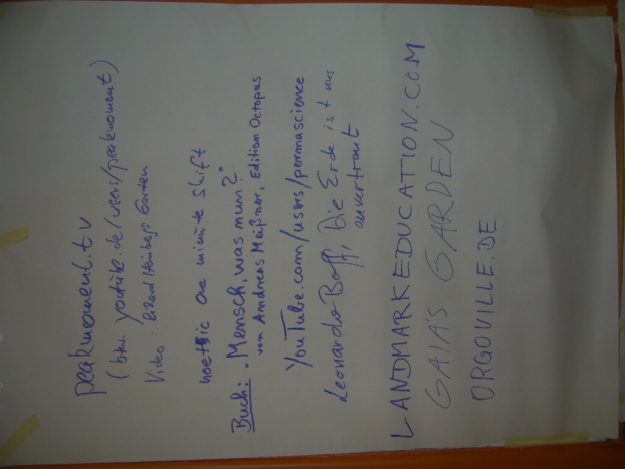 peakmoment.tv
(bzw. youtube.de/users/peakmoment)
Video: Garten
noetic one minute shift
Buch: • Mensch, was nun?
von Andreas Meißner, Edition Octopus
YouTube.com/users/permascience
Leonardo Boff, Die Erde ist uns
anvertraut
LANDMARKEDUCATION.COM
GAIA'S GARDEN
ORGOVILLE.DE